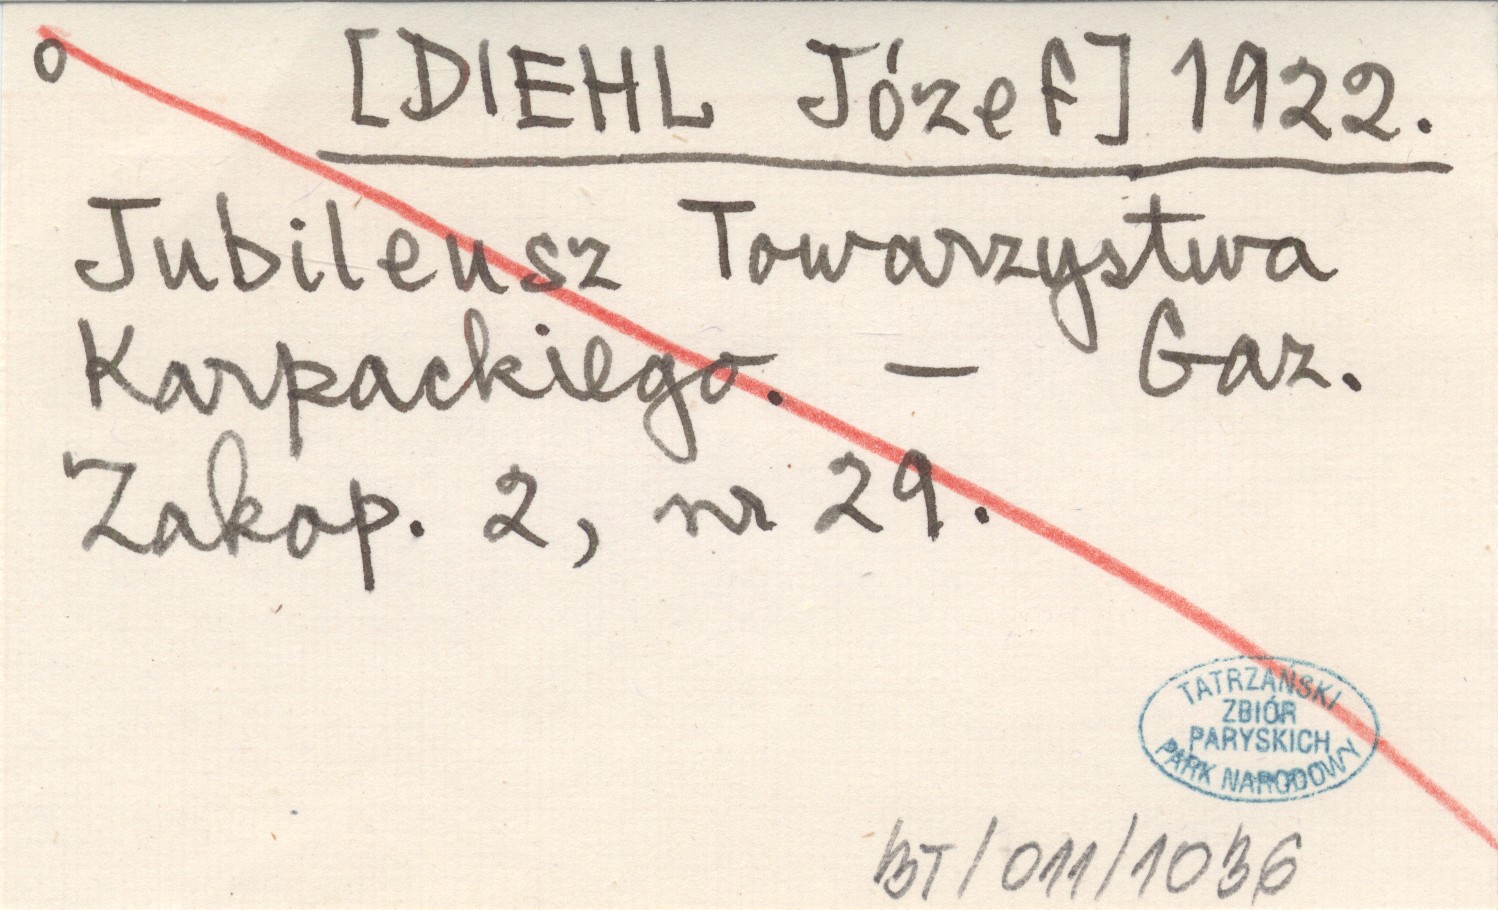 o [DIEHL Józef] 1922.
Jubileusz Towarzystwa
Karpackiego. — Gaz.
Zakop. 2, nr 29.
TATRZAŃSKI
ZBIÓR
PARYSKICH
PARK NARODOWY
BT/011/1036